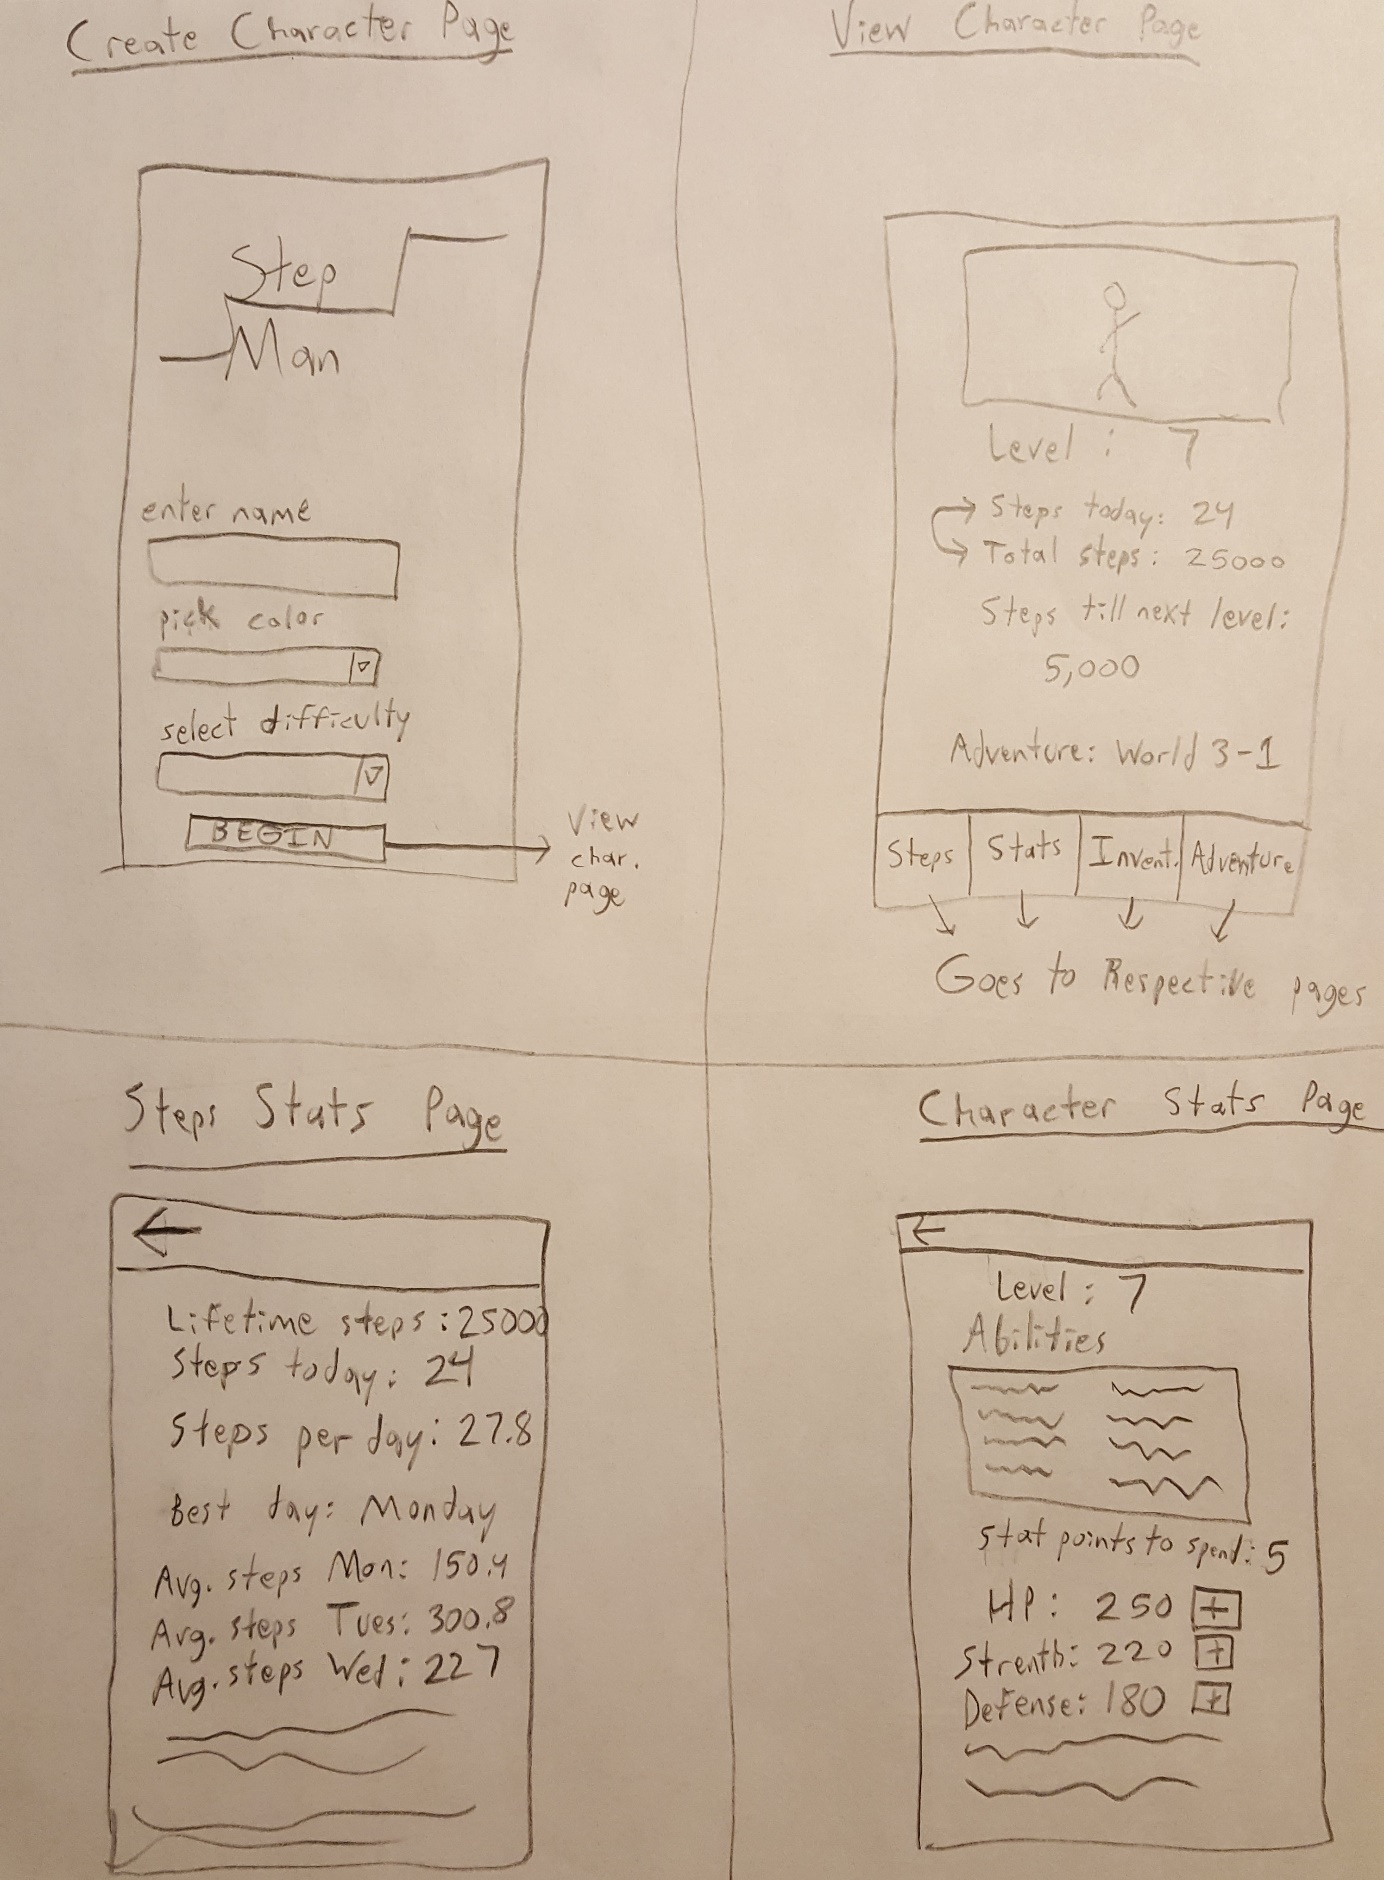 Create Character Page
Step
Man
enter name
pick color
select difficulty
BEGIN
View
char.
page
View Character Page
Level : 7
Steps today: 24
Total steps: 25000
Steps till next level:
5,000
Adventure: World 3-1
Steps
Stats
Invent.
Adventure
Goes to Respective pages
Steps Stats Page
Lifetime steps : 25000
Steps today: 24
Steps per day: 27.8
Best day: Monday
Avg. steps Mon: 150.4
Avg. steps Tues: 300.8
Avg. steps Wed: 227
Character Stats Page
Level : 7
Abilities
Stat points to spend: 5
HP: 250 +
Strenth: 220 +
Defense: 180 +